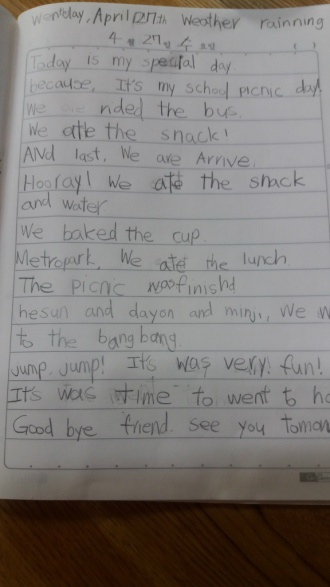 Wendday, April 27th Weather rainning
4월 27일 수요일 ( )
Today is my special day
because, It's my school picnic day!
We rided the bus.
We ate the snack!
AND last, We are Arrive.
Hooray! We ate the snack
and water
We baked the cup.
Metropark, We ate the lunch
The PICNIC finishd
hesun and dayon and minji, We
to the bangbang.
jump, jump! It's was very! fun!
It's was time to went to
Good bye friend. see you